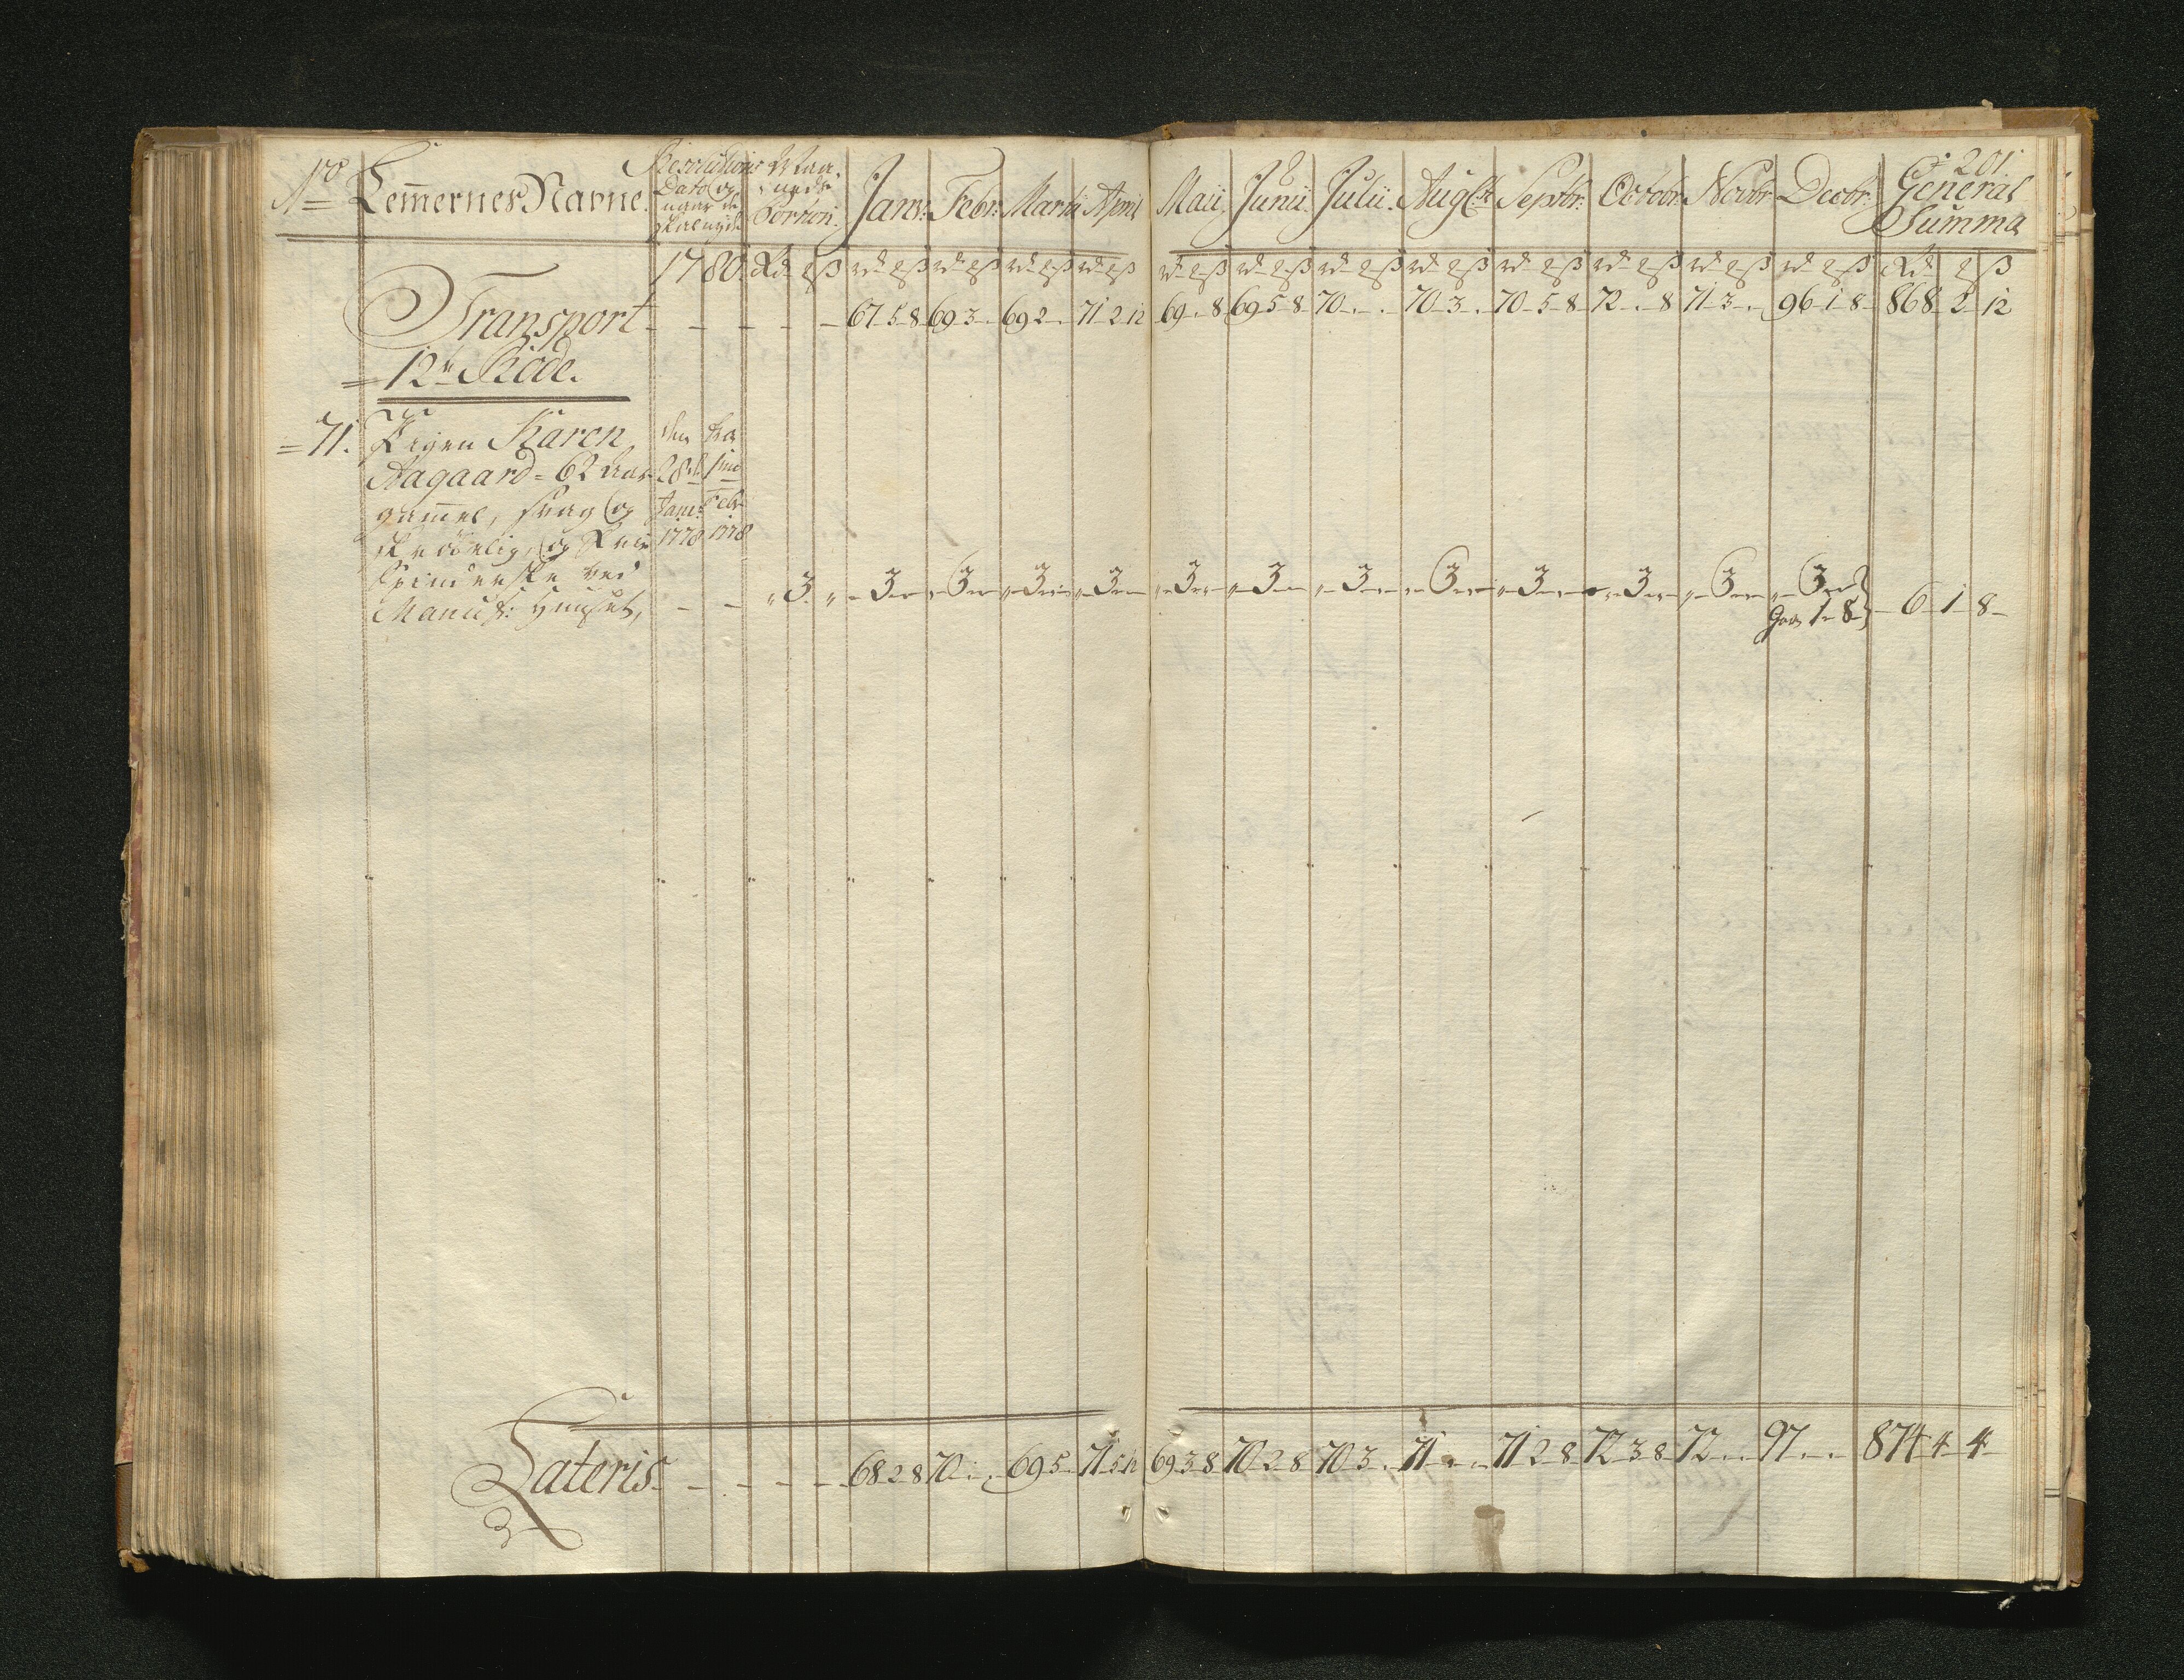 201.
No Lem̄ernes Navne. Resolutions Dato og naar de skal nyde Maaneds Portion. Janr: Febr: Martii April Maii Junii Julii Augst Septbr: Octobr: Novbr: Decbr: General Summa
1780. Rd ß rd ß rd ß rd ß rd ß rd ß rd ß rd ß rd ß rd ß rd ß rd ß rd ß Rd ß
Transport - - - - - 67-5-8 69-3-. 69-2-. 71-2-12 69-.-8 69-5-8 70-.-. 70-3-. 70-5-8 72-.-8 71-3-. 96-1-8 868-2-12
= 12te Rode.
= 71. Pigen Karen den fra
Aagaard = 62 Aar 28de 1me
gam̄el, svag og Janr: Febr
skrøbelig, og Frie 1778 1778
Spinderske ved
Manuf: Huuset, - - „ 3. „ - 3 - 3 - 3 - 3 - 3 - 3 - 3 - 3 - 3 - 3 - 3 - 3
1-8 - 6-1-8-
Lateris - - - - - 68-2-8 70-.-. 69-5- 71-5-12 69-3-8 70-2-8 70-3-. 71-.-. 71-2-8 72-3-8 72-.-. 97-.-. 874-4-4